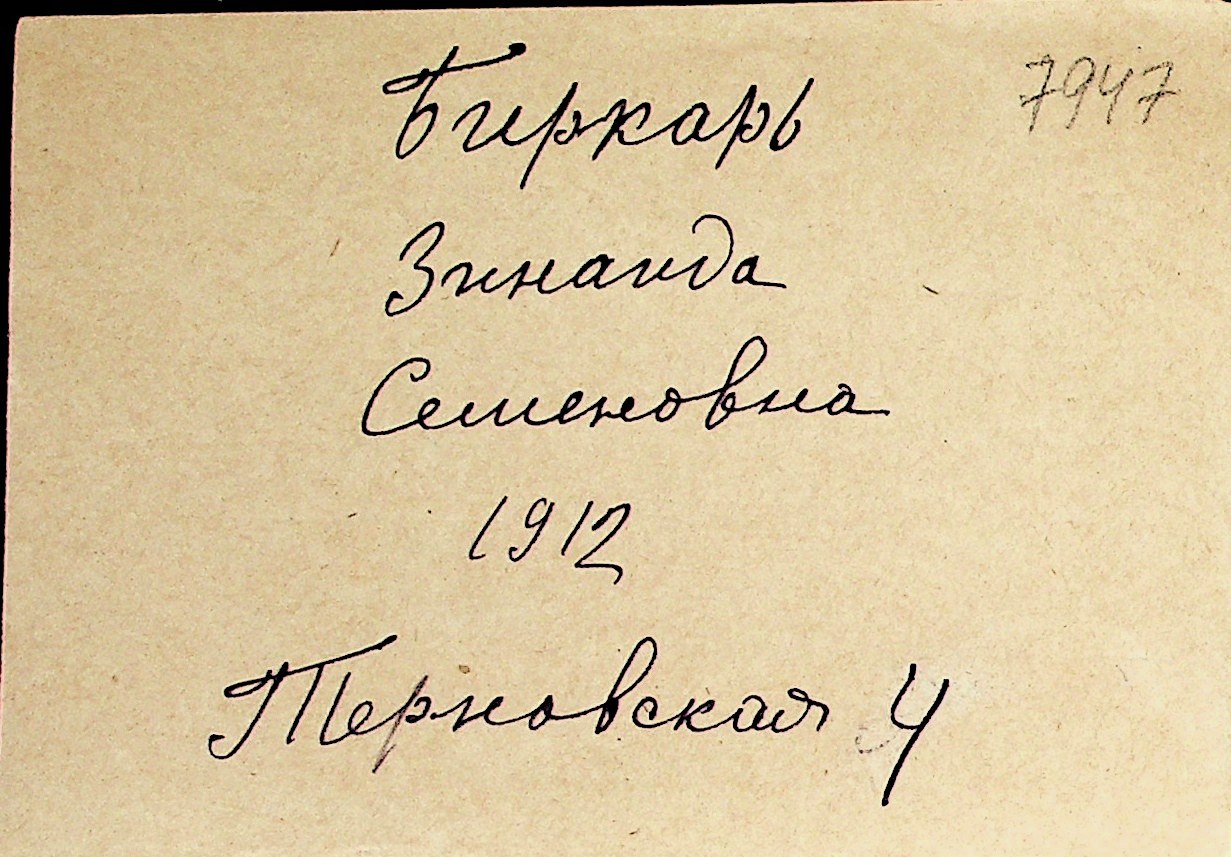 Биркарь 7947
Зинаида
Семеновна
1912
Терновская 4